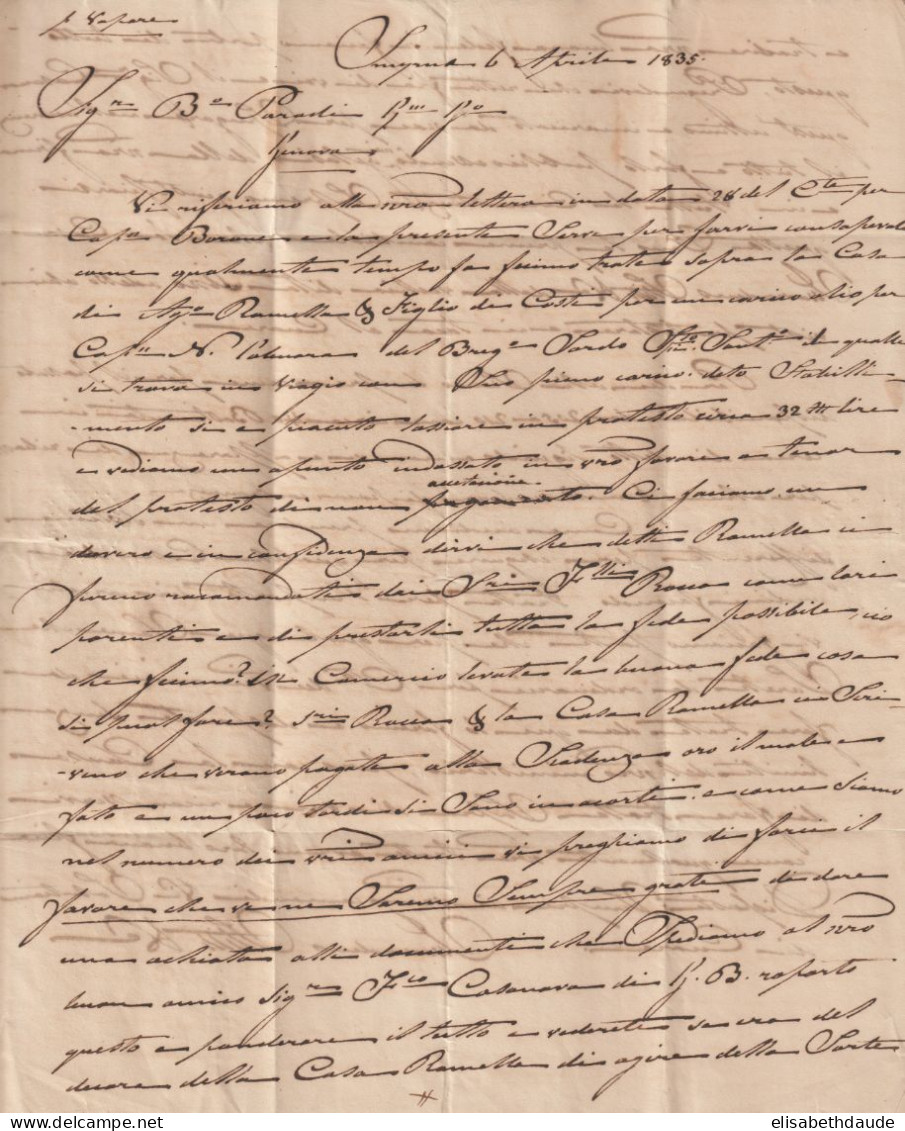 p Vapore
Smirne 6 Aprile 1835
Sigr Bo Parodi
Genova
Vi riferiamo alla vra lettera in data 28 del Cte per
Capn e la presente Serve per farvi consapevole
come qualmente tempo fa fecimo trate sopra la Casa
di Ago Ramella & Figlio di Costì per un carico olio per
Capn N. del Brigo Sardo il qualle
si trova in viagio con Suo pieno carico. deto Stabilli-
-mento si e piaciuto lassiare in protesto circa 32 m lire
e vediamo un apunto indossato in vro favore a tenor
del protesto di non acetazione. Ci faciamo un
dovere e in confidenza dirvi che detti Ramella ci
fureno racomandati dai Sri Flli Rocca come loro
parenti e di prestarli tutta la fede possibile, ciò
che fecimo? in Comercio levate la buona fede cosa
si puol fare? Sri Rocca & la Casa Ramella ci Scri-
-veno che verano pagate alla Scadenza oro il male e
fato e un poco tardi si Sono in acorti. e come siamo
nel numero dei vri amici vi preghiamo di farci il
favore che ve ne Saremo Sempre grati di dare
una ochiata alli documenti che Spediamo al vro
buon amico Sigr Fco Casanova di G. B. raporto
questo e ponderare il tutto e vederete se era del
decoro della Casa Ramella di agire della Sorte
elisabethdaude